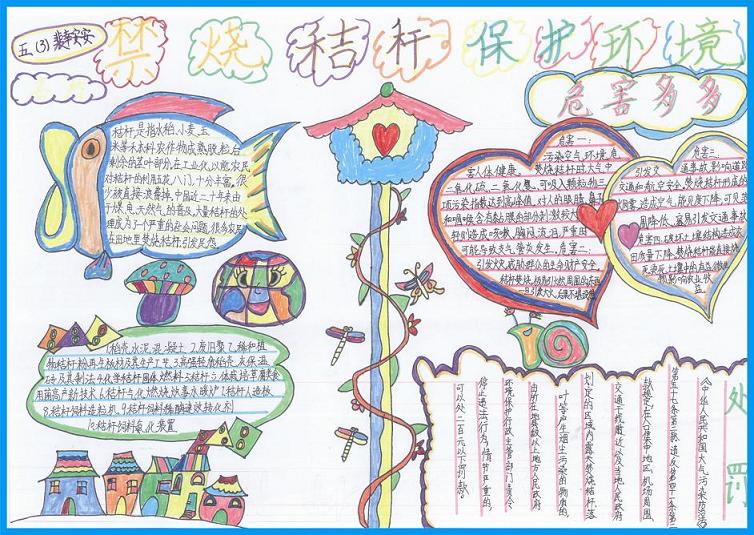 五、(3)
禁烧秸秆保护环境
危害多多
秸秆是指水稻、小麦、玉
米等禾本科农作物成熟脱粒后
剩余的茎叶部分,在工业化以前,农民
对秸秆的利用五花八门,十分丰富。很
少被直接浪费掉,中国近二十年来由
于煤、电、天然气的普及,大量秸秆的处
理成为了一个严重的社会问题,很多农民
在田地里焚烧秸秆引发民怨。
危害一:
污染空气环境,危
害人体健康。焚烧秸秆时,大气中
二氧化硫、二氧化氮、可吸入颗粒物三
项污染指数达到高峰值,对人的眼睛、鼻子
和咽喉含有黏膜的部分刺激较大,
轻则造成咳嗽、胸闷、流泪,严重时
可能导致支气管炎发生。危害二:
引发火灾,威胁群众的生命财产安全。
危害三:
引发交通事故,影响道路
交通和航空安全。焚烧秸秆形成的
烟雾,造成空气能见度下降,可见范
围降低,容易引发交通事故
危害四:破坏土壤结构,造成农
田质量下降。焚烧秸秆能直接烧
1.稻壳水泥混凝土 2.废旧聚乙烯和植
物秸秆粉再生板材及其生产工艺 3.高强轻质稻壳灰保温
砖及其制法 4.化学秸秆固体燃料
8.秸秆饲料造粒机 9.秸秆饲料
10.秸秆饲料氨化装置
处罚
《中华人民共和国大气污染防治法》
第五十七条第二款:违反第四十一条第二
款规定,在人口集中地区、机场周围、
交通干线附近以及当地人民政府
划定的区域内露天焚烧秸秆、落
叶等产生烟尘污染的物质的,
由所在地县级以上地方人民政府
环境保护行政主管部门责令
停止违法行为;情节严重的,
可以处二百元以下罚款。